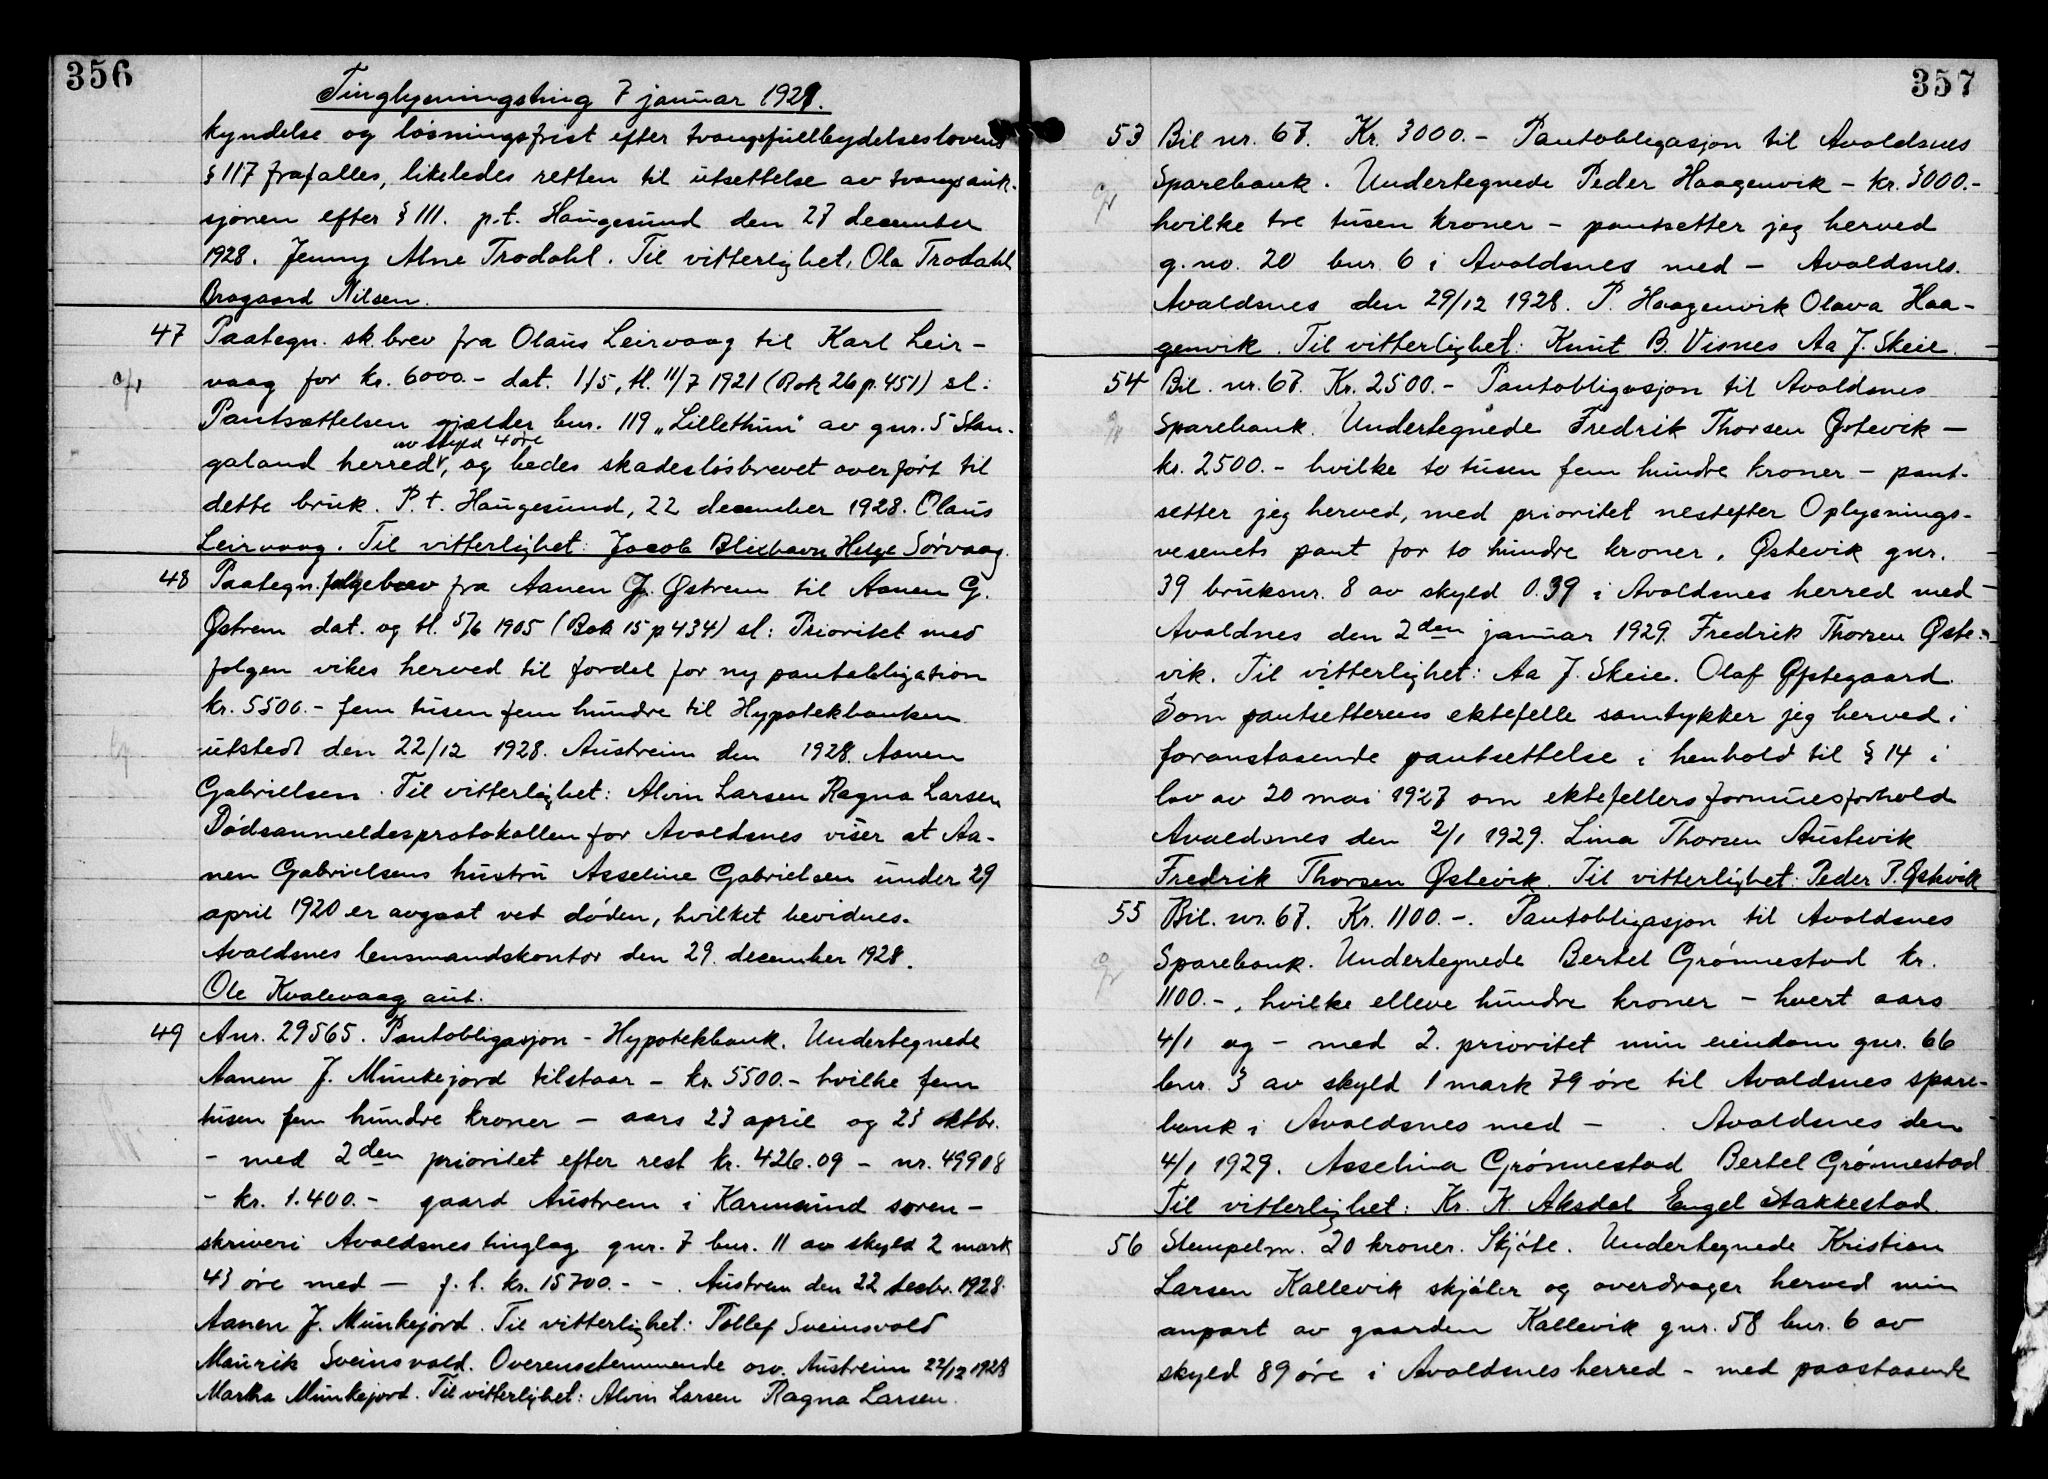 356
Tinglysningsting 7 januar 1929.
kyndelse og løsningsfrist efter tvangsfullbyrdelseslovens
§ 117 frafalles, likeledes retten til utsettelse av tvangsauk-
sjonen efter § 111. p.t. Haugesund den 27 december
1928. Jenny Alne Trodahl. Til vitterlighet, Ola Trodahl
Bragaard Nilsen.
47 Paategn. sk.brev fra Olaus Leirvaag til Karl Leir-
vaag for kr. 6000.- dat. 1/5, tl. 11/7 1921 (Bok 26 p. 451) sl:
Pantsættelsen gjælder bnr. 119 „Lillethun" av gnr. 5 Stan-
av skyld 4 øre
galand herred, og bedes skadesløsbrevet overført til
dette bruk. P.t. Haugesund, 22 december 1928. Olaus
Leirvaag. Til vitterlighet: Jacob Blikhavn Helge Sørvaag.
48 Paategn. følgebrev fra Aanen G. Østrem til Aanen G.
Østrem dat. og tl. 5/6 1905 (Bok 15 p 434) sl: Prioritet med
følgen vikes herved til fordel for ny pantobligation
kr. 5500.- fem tusen fem hundre til Hypotekbanken
utstedt den 22/12 1928. Austreim den 1928. Aanen
Gabrielsen. Til vitterlighet: Alvin Larsen Ragna Larsen
Dødsanmeldesprotokollen for Avaldsnes viser at Aa-
nen Gabrielsens hustru Asseline Gabrielsen under 29
april 1920 er avgaat ved døden, hvilket bevidnes.
Avaldsnes lensmandskontor den 29. december 1928.
Ole Kvalevaag aut.
49 Anr. 29565. Pantobligasjon - Hypotekbank. Undertegnede
Aanen J. Munkejord tilstaar - kr. 5500.- hvilke fem
tusen fem hundre kroner - aars 23 april og 23 oktbr.
- med 2den prioritet efter rest kr. 426.09 - nr. 49908
- kr. 1.400.- gaard Austrem i Karmsund soren-
skriveri Avaldsnes tinglag gnr. 7 bnr. 11 av skyld 2 mark
43 øre med - f. t. kr. 15700.- -. Austrem den 22 desbr. 1928.
Aanen J. Munkejord. Til vitterlighet: Tollef Sveinsvold
Maurik Sveinsvold. Overensstemmende osv. Austreim 22/12 1928
Martha Munkejord. Til vitterlighet: Alvin Larsen Ragna Larsen.
357
53 Bil nr. 67. Kr. 3000.- Pantobligasjon til Avaldsnes
Sparebank. Undertegnede Peder Haagenvik - kr. 3000.-
hvilke tre tusen kroner - pantsetter jeg herved
g. no. 20 bnr. 6 i Avaldsnes med - Avaldsnes.
Avaldsnes den 29/12 1928. P. Haagenvik Olava Haa-
genvik. Til vitterlighet: Knut B. Visnes Aa J. Skeie.
54 Bil. nr. 67. Kr. 2500.- Pantobligasjon til Avaldsnes
Sparebank. Undertegnede Fredrik Thorsen Østevik -
kr. 2500.- hvilke to tusen fem hundre kroner - pant-
setter jeg herved, med prioritet nestefter Oplysnings-
vesenets pant for to hundre kroner, Østevik gnr.
39 bruksnr. 8 av skyld 0.39 i Avaldsnes herred med -
Avaldnes den 2den januar 1929. Fredrik Thorsen Øste-
vik. Til vitterlighet: Aa J. Skeie. Olaf Østegaard.
Som pantsetterens ektefelle samtykker jeg herved i
foranstaaende pantsettelse i henhold til § 14 i
lov av 20 mai 1927 om ektefellers formuesforhold
Avaldsnes den 2/1 1929. Lina Thorsen Austevik
Fredrik Thorsen Østevik. Til vitterlighet: Peder P. Østevik
55 Bil. nr. 67. Kr. 1100.-. Pantobligasjon til Avaldsnes
Sparebank. Undertegnede Bertel Grønnestad kr.
1100.-, hvilke elleve hundre kroner - hvert aars
4/1 og - med 2. prioritet min eiendom gnr. 66
bnr. 3 av skyld 1 mark 79 øre til Avaldsnes spare-
bank i Avaldsnes med - . Avaldsnes den
4/1 1929. Asselina Grønnestad Bertel Grønnestad
Til vitterlighet: Kr. K. Aksdal Engel Stakkestad.
56 Stempelm. 20 kroner. Skjøte. Undertegnede Kristian
Larsen Kallevik skjøter og overdrager herved min
anpart av gaarden Kallevik gnr. 58 bnr. 6 av
skyld 89 øre i Avaldsnes herred - med paastaaende